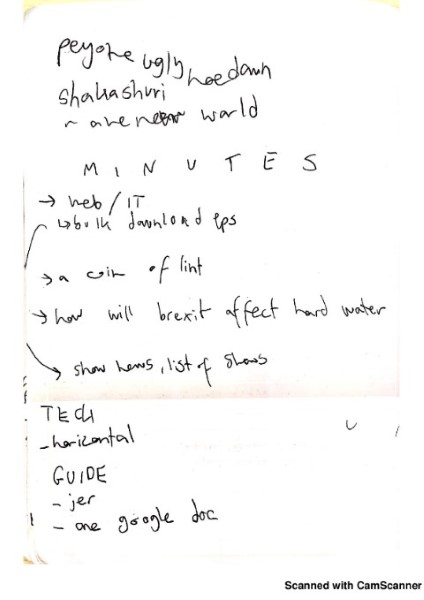 peyote ugly hoedown
shakashuri
~ are near world
MINUTES
→ web/IT
↳ bulk download eps
→ a coin of lint
→ how will brexit affect hard water
→ show news, list of shows
TECH
- horizontal
GUIDE
- jer
- one google doc
Scanned with CamScanner